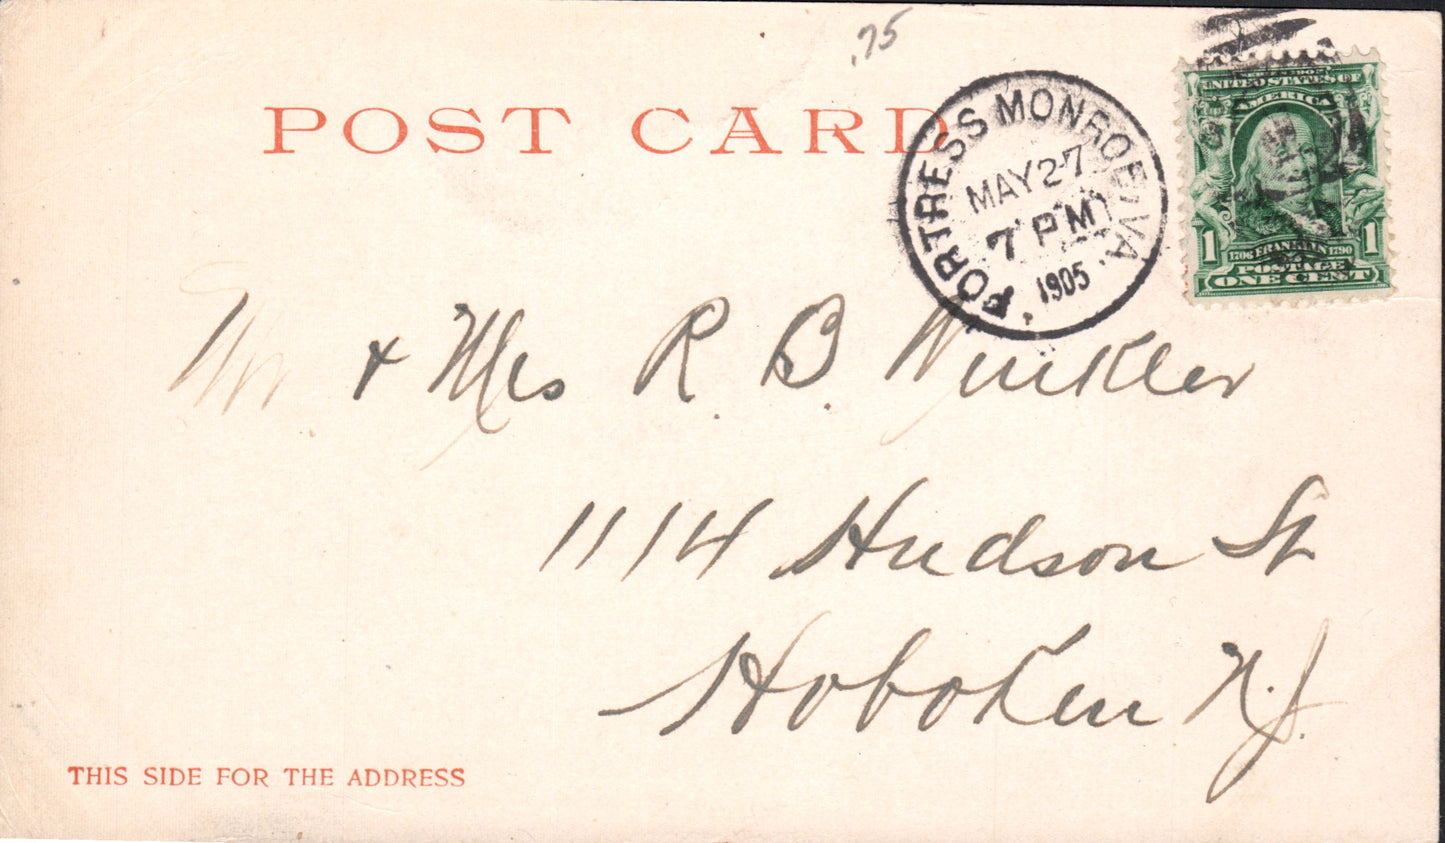 .75
POST CARD
FORTRESS MONROE, VA.
MAY 27
7 PM
1905
UNITED STATES OF
AMERICA
1
1706 FRANKLIN 1790
1
POSTAGE
ONE CENT
Mr & Mrs R. B. Winkler
1114 Hudson St
Hoboken N.J.
THIS SIDE FOR THE ADDRESS